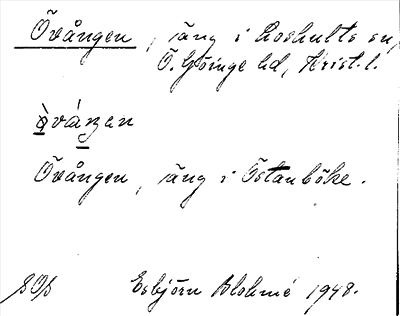 Övången, äng i Loshults sn,
Ö. Göinge hd, Krist. l.
Övången, äng i Östanböke.
Esbjörn Blohmé 1948.